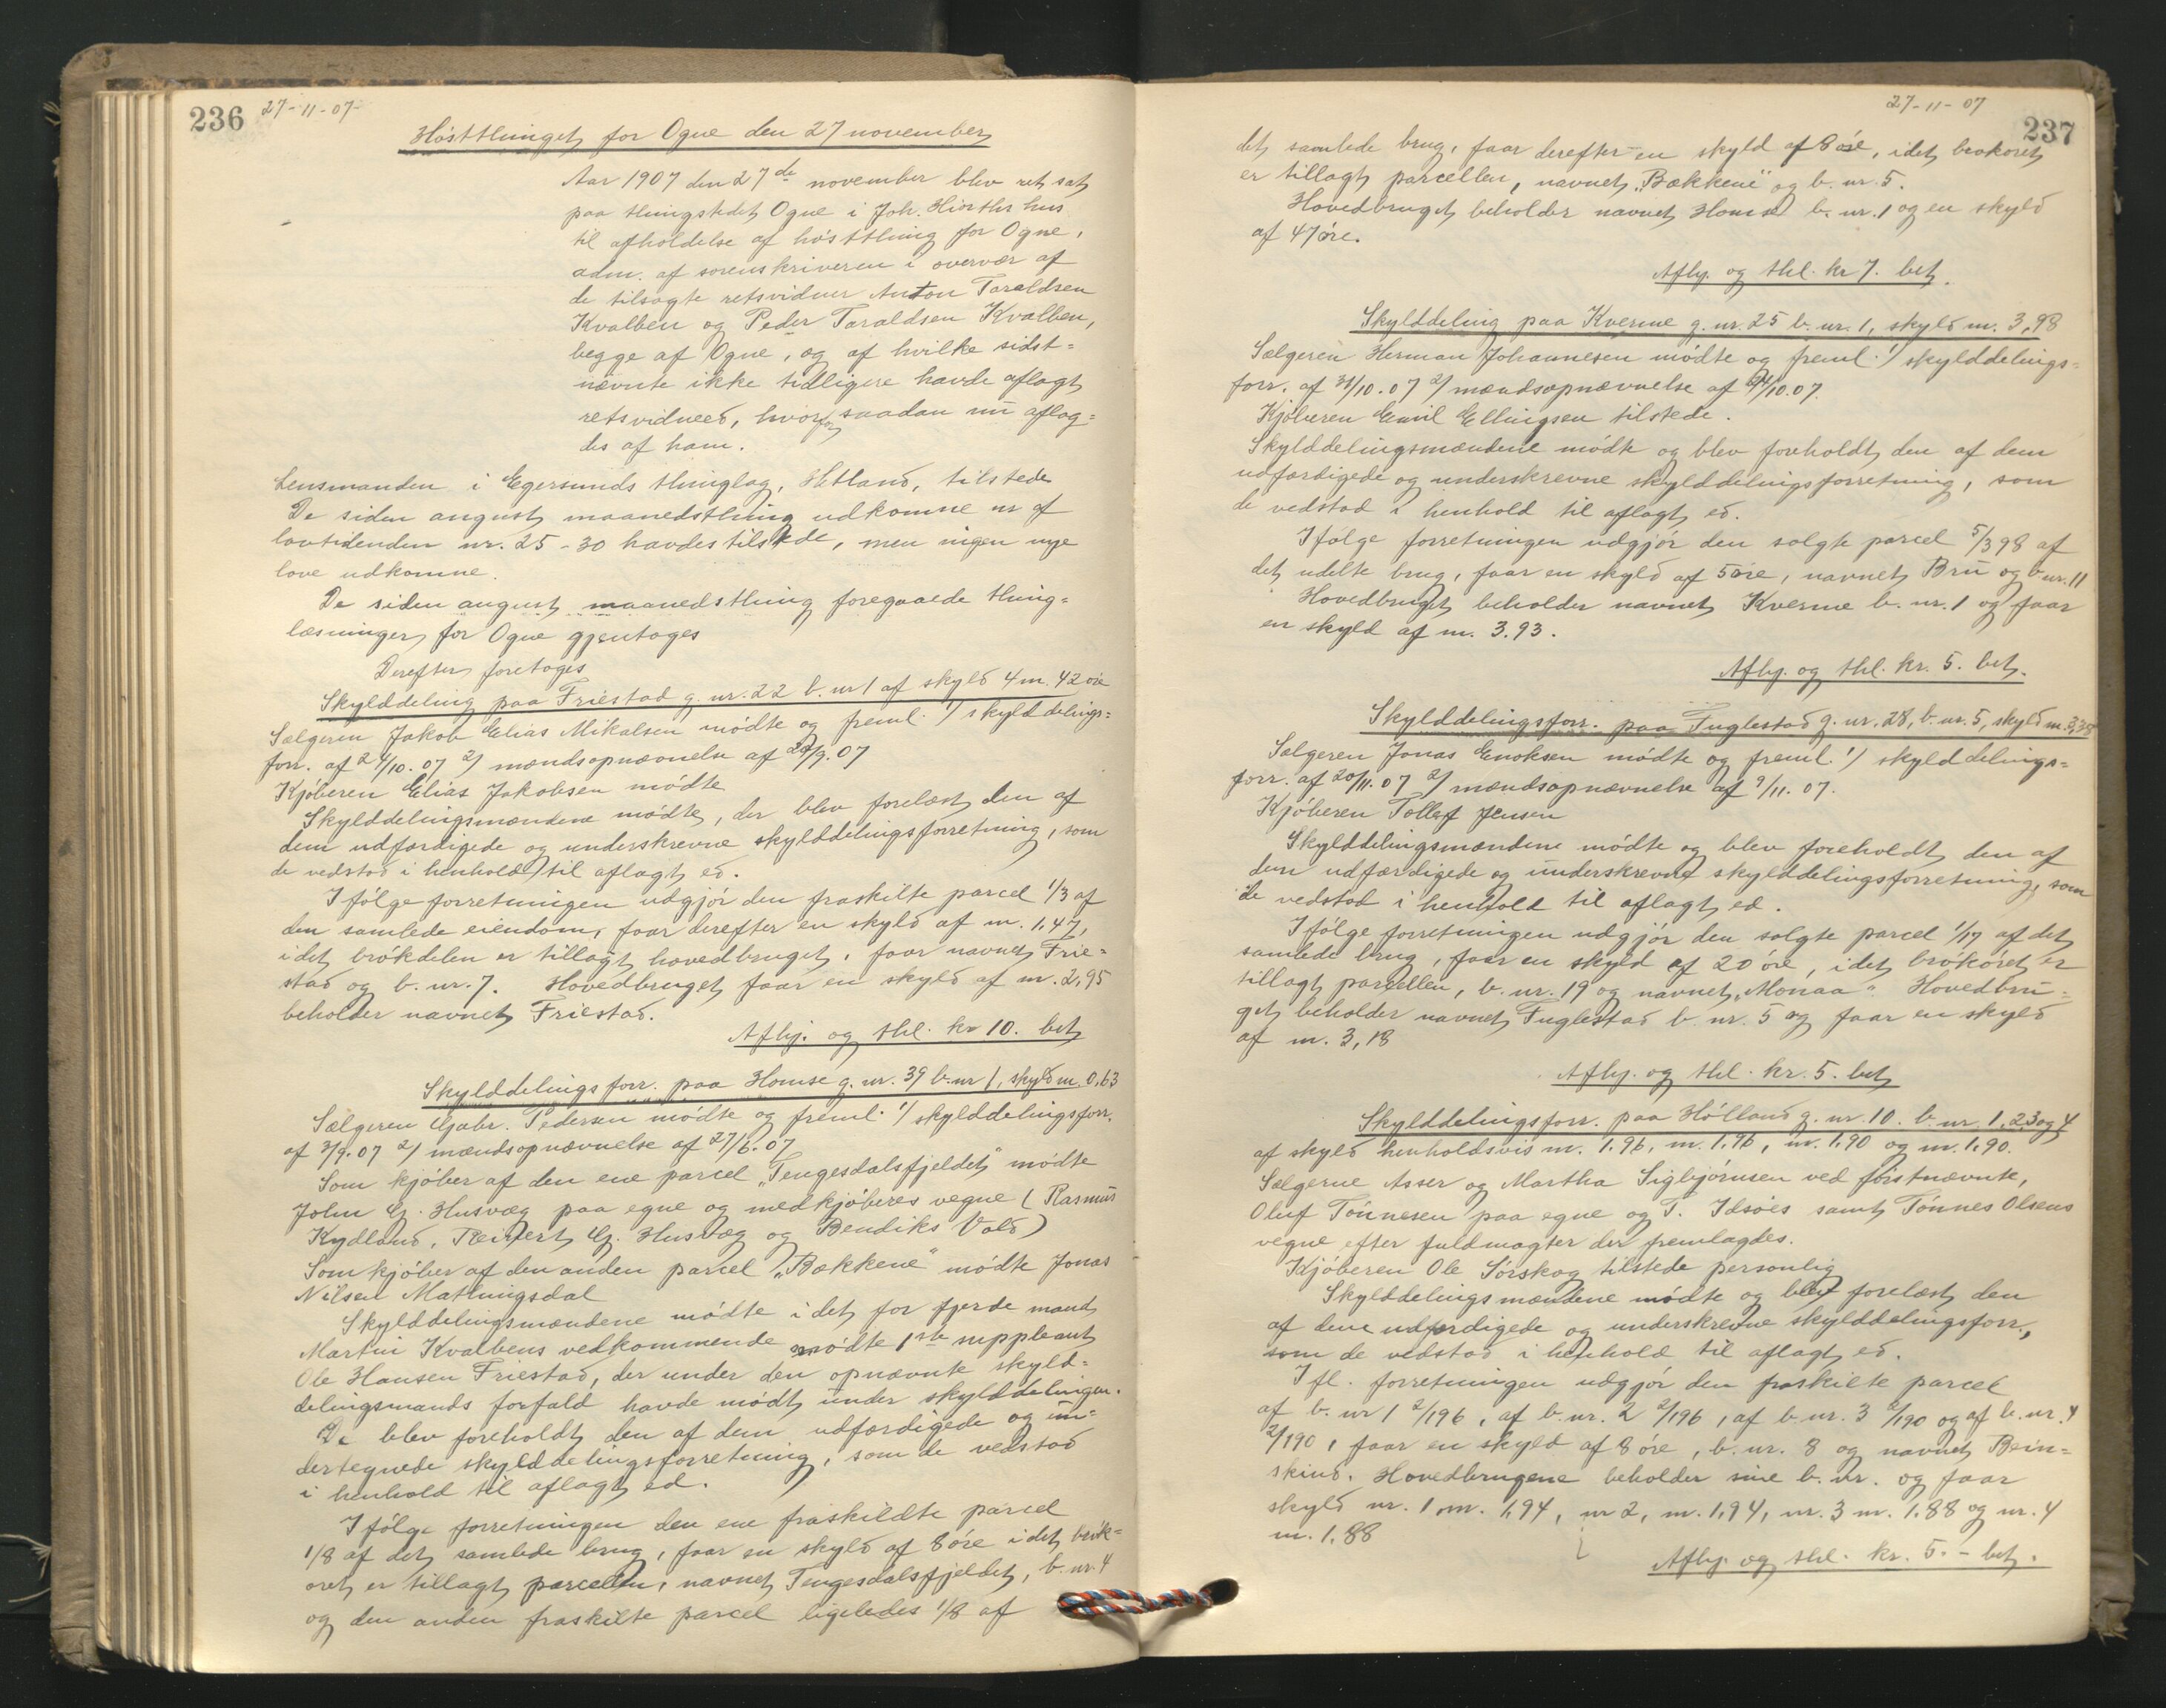 236 27-11-07-
Hösttthinget for Ogne den 27 november
Aar 1907 den 27de november blev ret sat
paa thingstedet Ogne i Joh. Hiorths hus
til afholdelse af höstthing for Ogne,
adm. af sorenskriveren i overvær af
de tilsagte retsvidner Anton Taraldsen
Kvalben og Peder Taraldsen Kvalben,
begge af Ogne, og af hvilke sidst=
nævnte ikke tidligere havde aflagt
retsvidneed, hvorfor saadan nu aflag=
des af ham.
Lensmanden i Egersunds thinglag, Hetland, tilstede
De siden august maanedsthing udkomne nr af
lovtidenden nr. 25-30 havdes tilstede, men ingen nye
love udkomne.
De siden august maanedsthing foregaaede thing=
læsninger for Ogne gjentages
Derefter foretoges
Skylddeling paa Friestad g. nr. 22 b. nr 1 af skyld 4 m. 42 øre
Sælgeren Jakob Elias Mikalsen mödte og freml. 1) skylddelings=
forr. af 24/10. 07 2) mændsopnævnelse af 20/9. 07
Kjöberen Elias Jakobsen mödte
Skylddelingsmændene mödte, der blev forelæst den af
dem udfærdigede og underskrevne skylddelingsforretning, som
de vedstod i henhold til aflagt ed.
Ifölge forretningen udgjör den fraskilte parcel 1/3 af
den samlede eiendom, faar derefter en skyld af m. 1,47,
idet brökdelen er tillagt hovedbruget, faar navnet Frie=
stad og b. nr. 7. Hovedbruget faar en skyld af m. 2,95
beholder navnet Friestad.
Afhj. og thl. kr 10. bet
Skylddelingsforr. paa Homse g. nr. 39 b. nr 1, skyld m. 0,63
Sælgeren Gabr. Pedersen mödte og freml. 1) skylddelingsforr.
af 3/9. 07 2) mændsopnævnelse af 27/6. 07
Som kjöber af den ene parcel „Tengesdalsfjeldet" mödte
John G. Husvæg paa egne og medkjöberes vegne (Rasmus
Kydland, Reinert G. Husvæg og Bendiks Vold)
Som kjöber af den anden parcel „Bækkene" mödte Jonas
Nilsen Matningsdal
Skylddelingsmændene mödte idet for fjerde mand
Martin Kvalbens vedkommende mödte 1ste suppleant
Ole Hansen Friestad, der under den opnævnte skyld=
delingsmands forfald havde mödt under skylddelingen.
De blev foreholdt den af dem udfærdigede og un=
dertegnede skylddelingsforretning, som de vedstod
i henhold til aflagt ed.
Ifölge forretningen den ene fraskildte parcel
1/8 af det samlede brug, faar en skyld af 8 öre idet brök=
øret er tillagt parcellen, navnet Tengesdalsfjeldet, b. nr. 4
og den anden fraskilte parcel ligeledes 1/8 af
27-11-07
237
det samlede brug, faar derefter en skyld af 8 öre, idet brøkøret
er tillagt parcellen, navnet „Bækkene" og b. nr. 5.
Hovedbruget beholder navnet Homse b. nr. 1 og en skyld
af 47 öre.
Afhj. og thl. kr 7. bet.
Skylddeling paa Kverme g. nr. 25 b. nr. 1, skyld m. 3,98
Sælgeren Herman Johannesen mödte og freml. 1) skylddelings=
forr. af 31/10. 07 2) mændsopnævnelse af /10. 07.
Kjöberen Emil Ellingsen tilstede.
Skylddelingsmændene mödte og blev foreholdt den af dem
udfærdigede og underskrevne skylddelingsforretning, som
de vedstod i henhold til aflagt ed.
Ifölge forretningen udgjör den solgte parcel 5/398 af
det udelte brug, faar en skyld af 5 öre, navnet Bru og b nr. 11
Hovedbruget beholder navnet Kverme b. nr. 1 og faar
en skyld af m. 3.93.
Afhj. og thl. kr. 5. bet.
Skylddelingsforr. paa Fuglestad g. nr. 28, b. nr. 5, skyld m. 3,38
Sælgeren Jonas Enoksen mödte og freml. 1) skylddelings=
forr. af 20/11. 07 2) mændsopnævnelse af 9/11. 07.
Kjöberen Tollef Jensen
Skylddelingsmændene mödte og blev foreholdt den af
dem udfærdigede og underskrevne skylddelingsforretning, som
de vedstod i henhold til aflagt ed.
Ifölge forretningen udgjör den solgte parcel 1/17 af det
samlede brug, faar en skyld af 20 öre, idet brökøret er
tillagt parcellen, b. nr. 19 og navnet „Monaa". Hovedbru=
get beholder navnet Fuglestad b. nr. 5 og faar en skyld
af m. 3,18
Afhj. og thl. kr. 5. bet
Skylddelingsforr. paa Hölland g. nr. 10. b. nr. 1, 2, 3 og 4
af skyld henholdsvis m. 1.96, m. 1.96, m. 1.90 og m. 1.90.
Sælgerne Asser og Martha Sigbjörnsen ved förstnævnte,
Oluf Tönnesen paa egne og T. Idsöes samt Tönnes Olsens
vegne efter fuldmagter der fremlagdes.
Kjöberen Ole Sörskog tilstede personlig
Skylddelingsmændene mödte og blev forelæst den
af dem udfærdigede og underskrevne skylddelingsforr.,
som de vedstod i henhold til aflagt ed.
Ifl. forretningen udgjör den fraskilte parcel
af b. nr 1 2/196, af b. nr. 2 2/196, af b. nr. 3 2/190 og af b. nr. 4
2/190, faar en skyld af 8 öre, b. nr. 8 og navnet Bein=
skind. Hovedbrugene beholder sine b. nr. og faar
skyld nr. 1 m. 1,94, nr 2, m. 1,94, nr. 3 m. 1.88 og nr. 4
m. 1.88
Afhj. og thl. kr. 5. - bet.